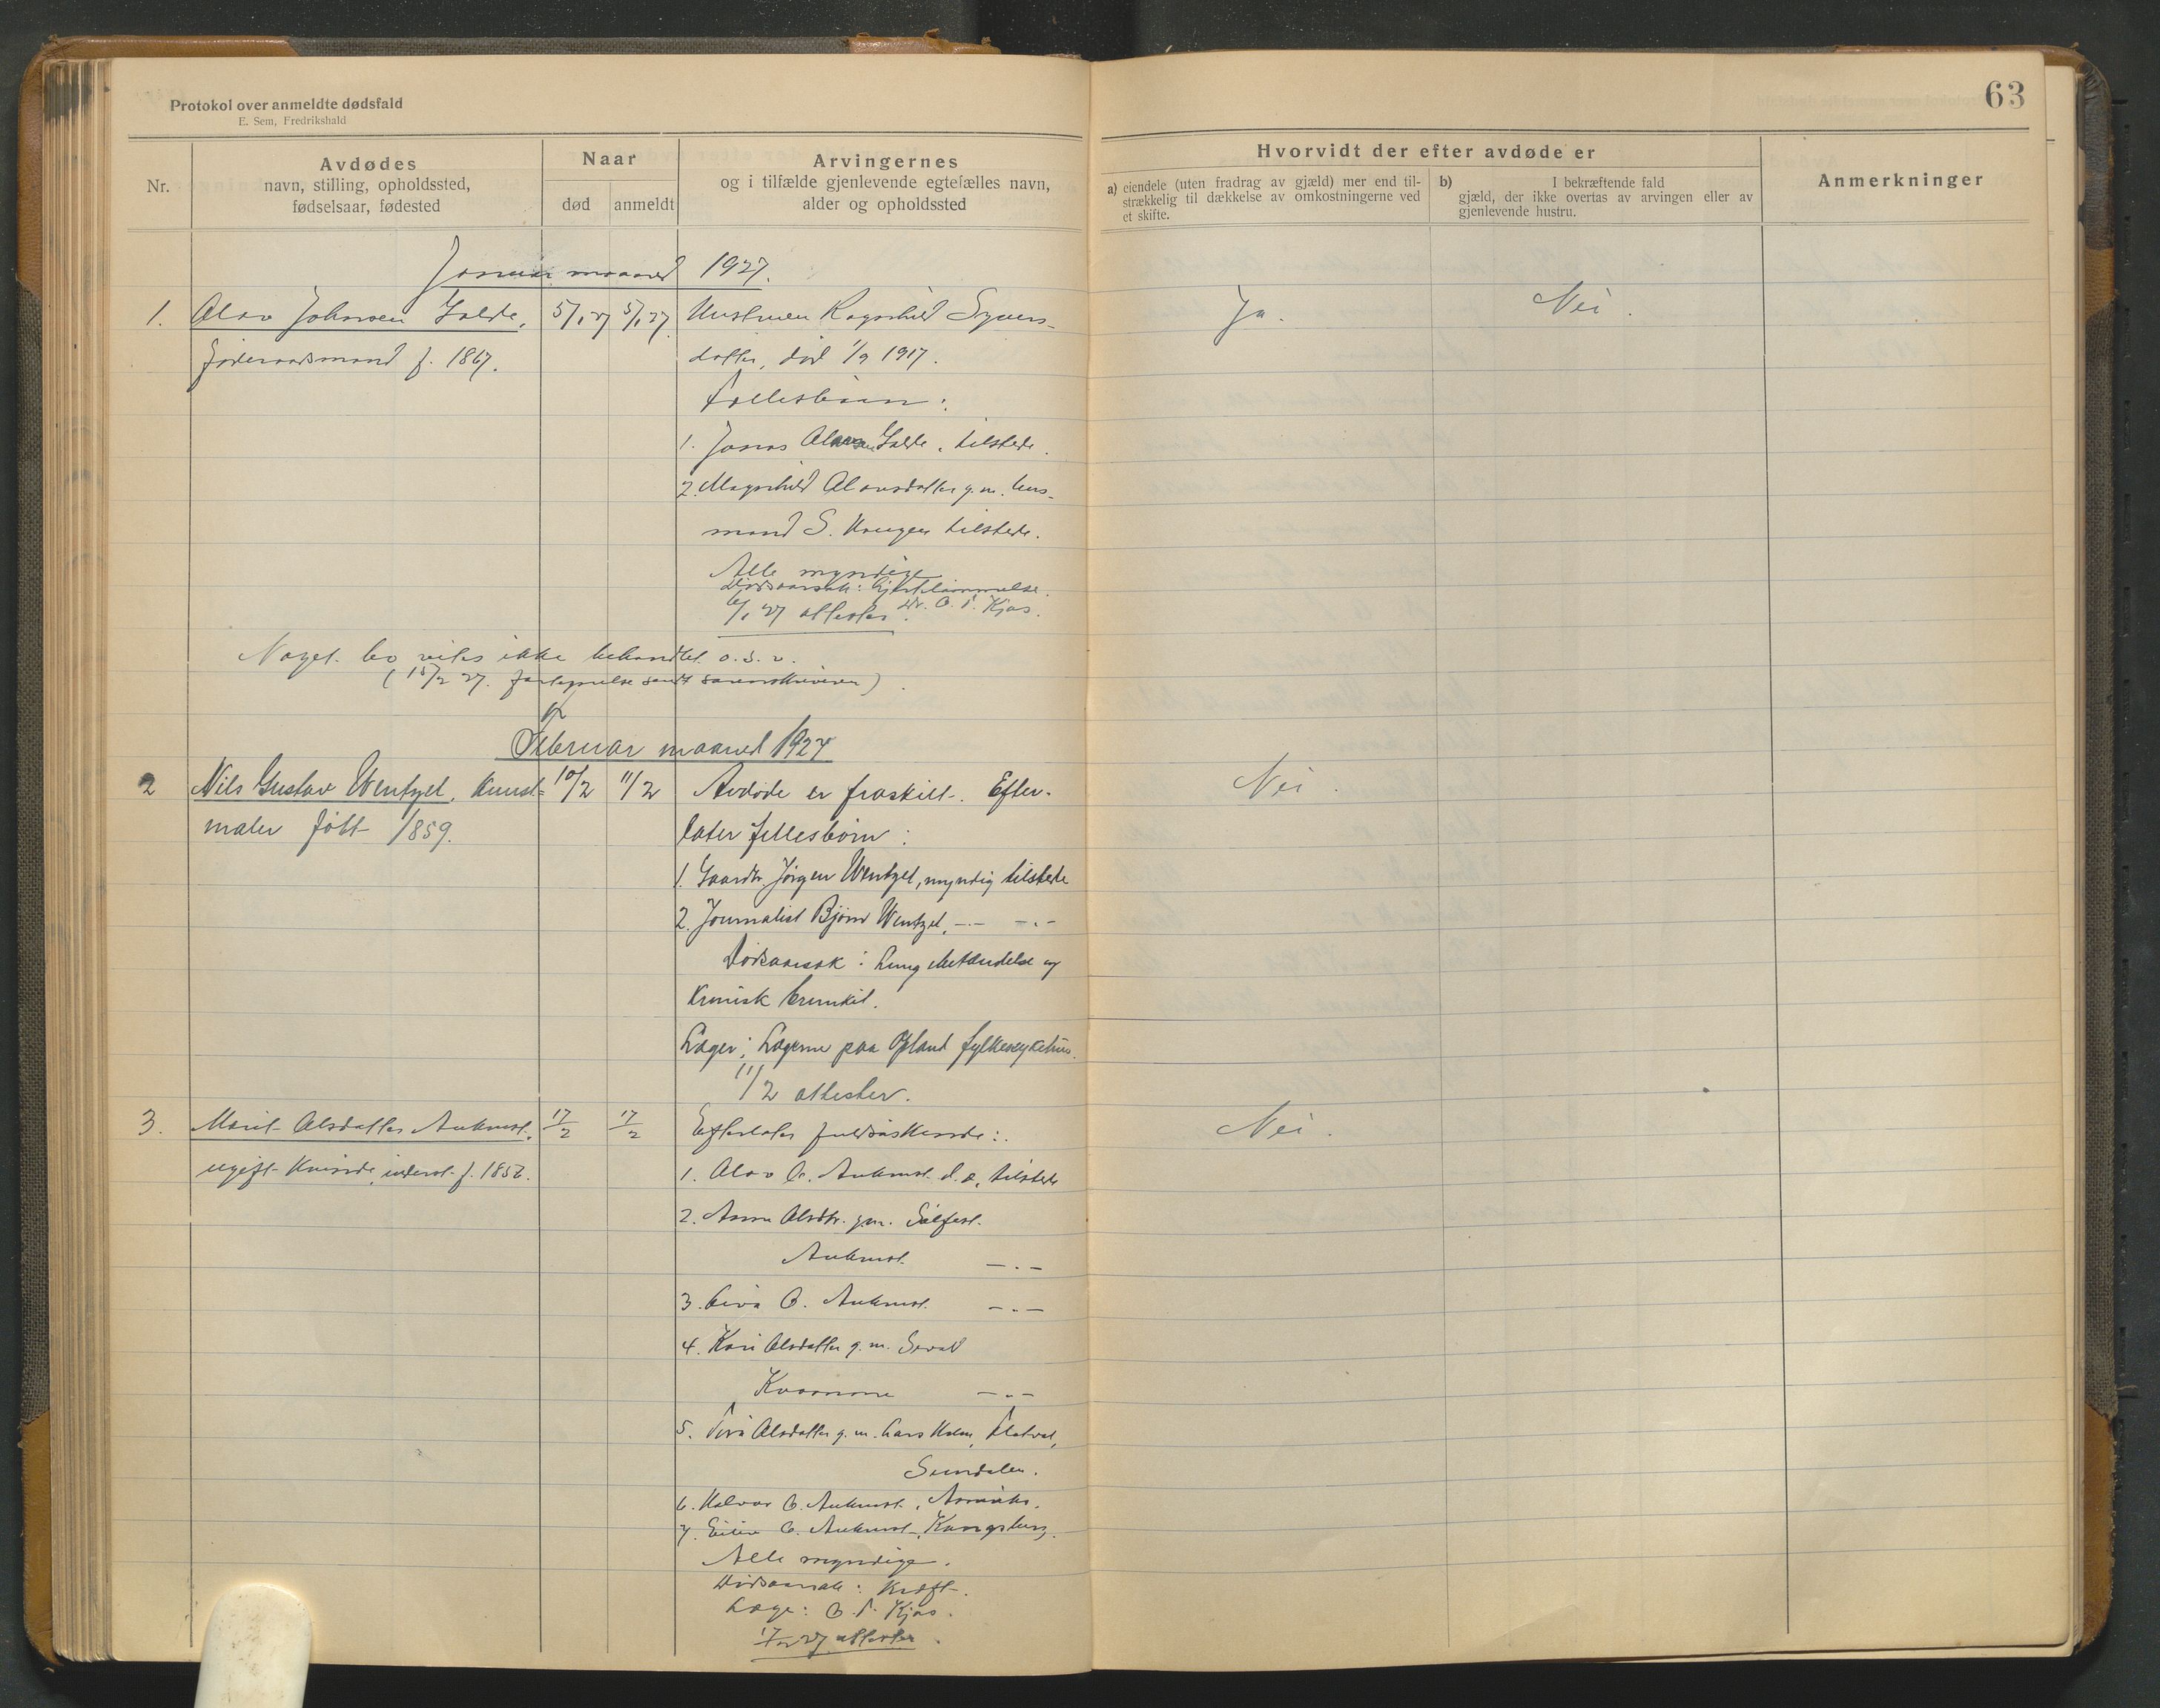 Protokol over anmeldte dødsfald
E. Sem, Fredrikshald
63
Nr.
Avdødes
navn, stilling, opholdssted,
fødselsaar, fødested
Naar
død
anmeldt
Arvingernes
og i tilfælde gjenlevende egtefælles navn,
alder og opholdssted
Hvorvidt der efter avdøde er
a) eiendele (uten fradrag av gjæld) mer end til-
strækkelig til dækkelse av omkostningerne ved
et skifte.
b) I bekræftende fald
gjæld, der ikke overtas av arvingen eller av
gjenlevende hustru.
Anmerkninger
Januar maaned 1927.
1. Olav Johnsen Galde, 5/1 27 5/1 27. Hustruen Ragnhild Syvers-
Ja. Nei.
føderaadsmand f. 1867. datter, død 1/9 1917.
Fellesbørn:
1. Jonas Galde, tilstede.
2. Magnhild Olavsdatter g.m. hus-
mand S. Haugen tilstede.
Alle myndige
Dødsaarsak: hjertelammelse.
6/1 27 attester. Dr. O. T. Kjos.
Noget bo vites ikke behandlet o.s.v.
(15/2 27. sendt sorenskriveren).
Februar maaned 1927
2 Nils Gustav Wentzel, Kunst= 10/2 11/2 Avdøde er fraskilt. Efter-
Nei.
maler født 1859. later fellesbørn:
1. Gaardbr. Jörgen Wentzel, myndig tilstede
2. Journalist Bjørn Wentzel, -.- -.-
Dødsaarsak: Lungebetændelse og
Kronisk bronkit.
Læger: Lægerne paa Opland fylkessykehus.
11/2 attester.
3. Marit Olsdatter 17/2 17/2 Efterlater fuldsøskende:
Nei.
ugift Kvinde, inderst f. 1856. 1. Olav O. d.e. tilstede
2. Anne Olsdtr. g.m. Sølfest
-.-
3. O. -.-
4. Kari Olsdatter g.m. Sevald
Kvamme -.-
5. Olsdatter g.m. Lars
Sundalen.
6. Halvor O. Amerika.
7. Eilev O. Kongsberg.
Alle myndige.
Dødsaarsak: Kræft.
Læge: O. T. Kjos.
17/2 27 attester.